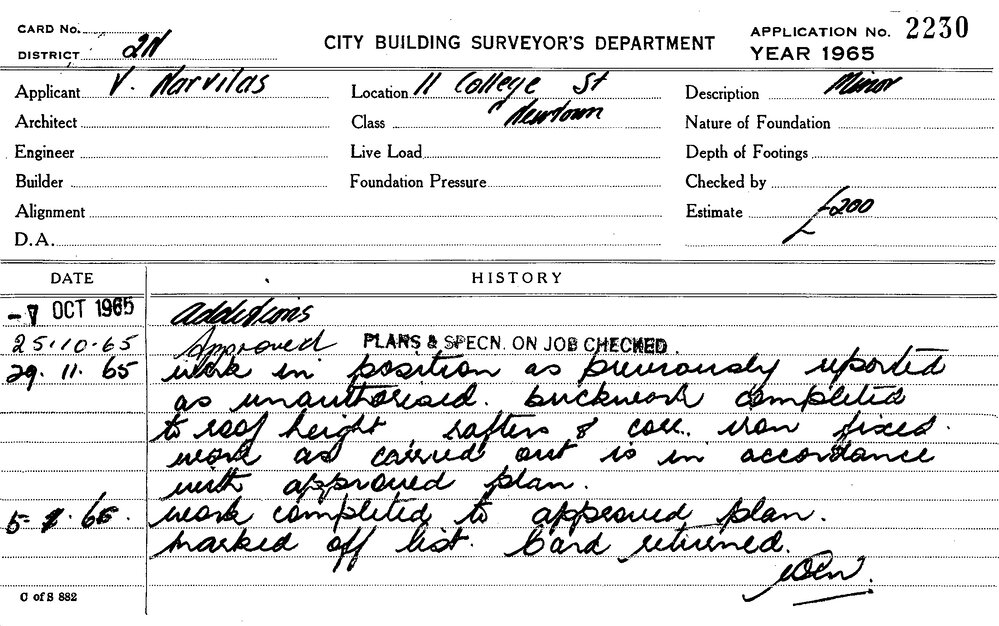 CARD No.
DISTRICT 2N
CITY BUILDING SURVEYOR'S DEPARTMENT
APPLICATION No. 2230
YEAR 1965
Applicant V. Narvilas
Location 11 College St
Description Minor
Architect
Class " Newtown
Nature of Foundation
Engineer
Live Load
Depth of Footings
Builder
Foundation Pressure
Checked by
Alignment
Estimate £200
D.A.
£
DATE
HISTORY
-7 OCT 1965 Additions
25.10.65 Approved PLANS & SPECN. ON JOB CHECKED.
29. 11. 65 work in position as previously reported
as unauthorised. brickwork completed
to roof height, rafters & corr. iron fixed.
work as carried out is in accordance
with approved plan.
work completed to approved plan.
marked off list. Card returned.
C of S 882